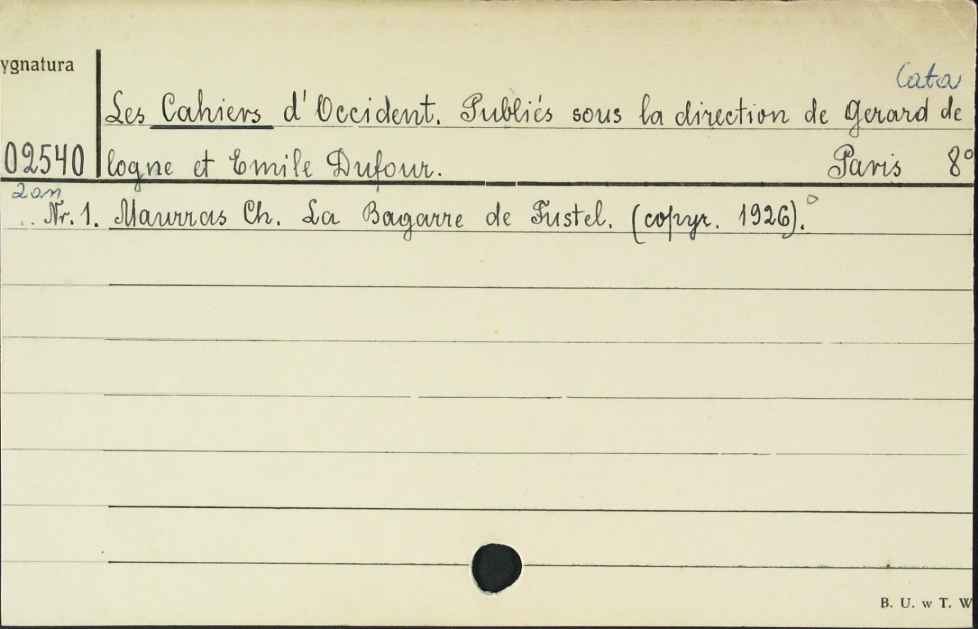 ygnatura
Cata
Les Cahiers d'Occident. Publiés sous la direction de Gerard de
02540 logne et Emile Dufour. Paris 8°
2 am
Nr. 1. Maurras Ch. La Bagarre de Fustel. (copyr. 1926).°
B. U. w T. W